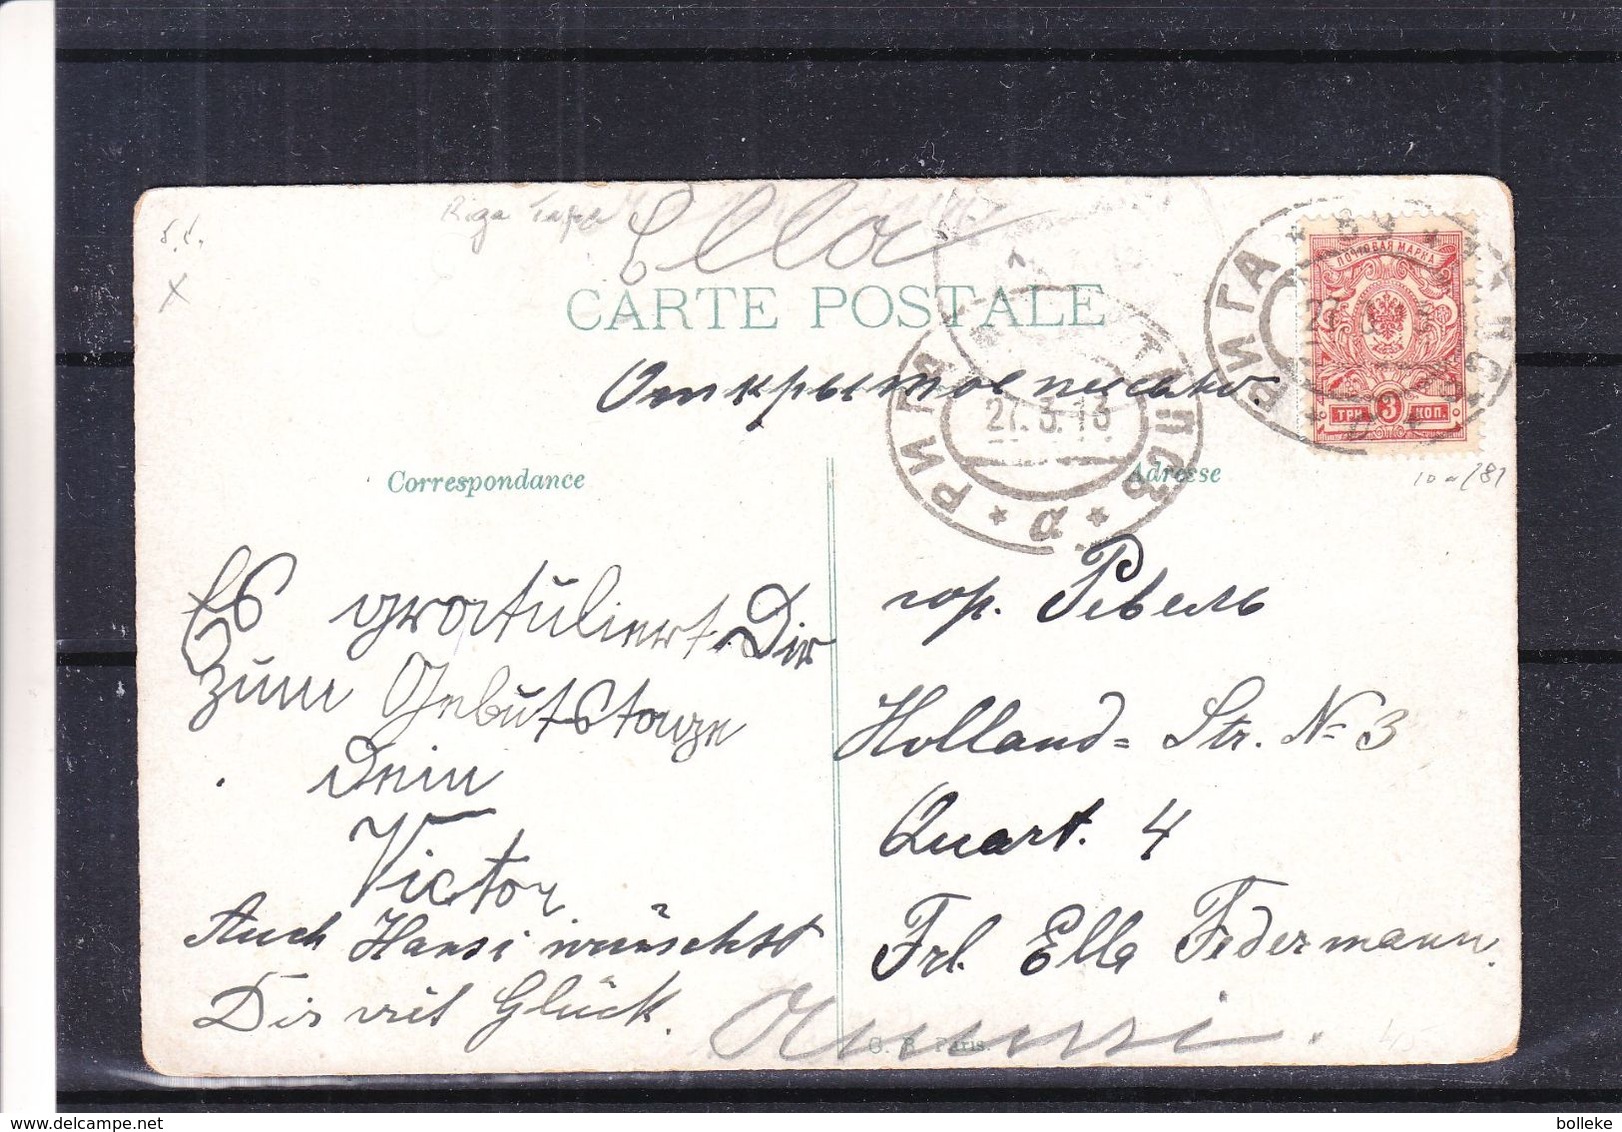 Riga
Ella
CARTE POSTALE
Открытое письмо.
ПОЧТОВАЯ МАРКА
ТРИ 3 КОП.
РИГА
РИГА
27.3.13
а
Correspondance
Adresse
Es gratuliert Dir
zum Gebutstage
Dein
Victor
Auch Hansi wünscht
Dir viel Glück.
гор. Ревель
Holland= Str. № 3
Quart. 4
Frl. Ella Federmann.
Paris.
bolleke